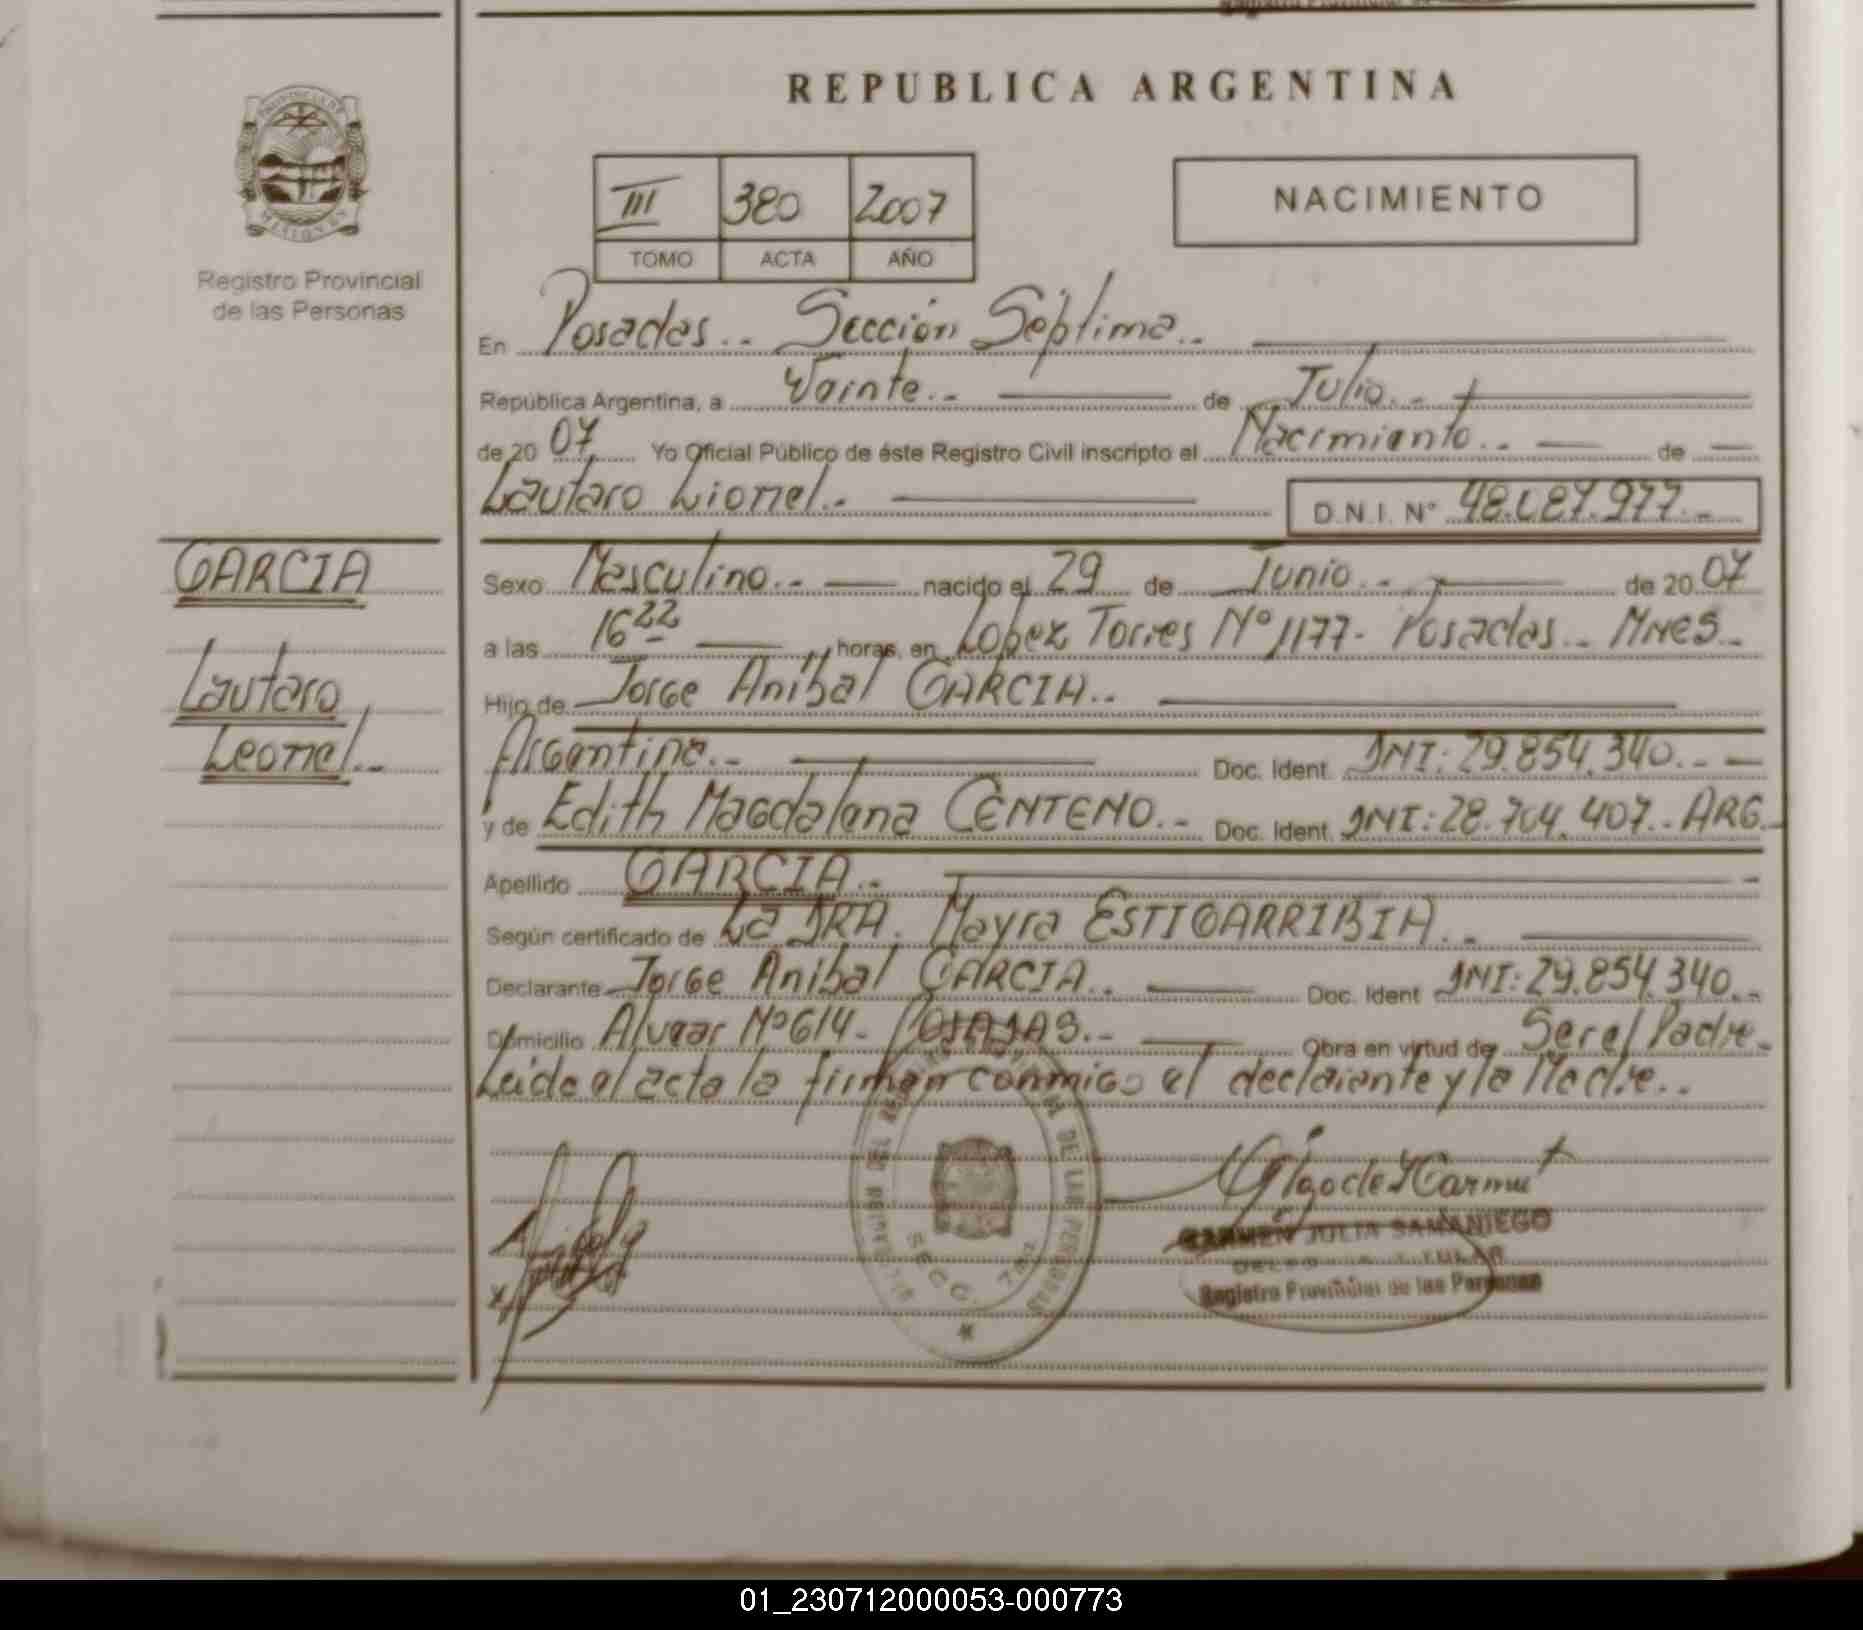 REPUBLICA ARGENTINA
PROVINCIA DE
MISIONES
Registro Provincial
de las Personas
III 380 2007
TOMO ACTA AÑO
NACIMIENTO
En Posadas.. Sección Séptima..
República Argentina, a Veinte.. de Julio..
de 20 07 Yo Oficial Público de éste Registro Civil inscripto el Nacimiento.. de
Lautaro Lionel.. D.N.I. Nº 48.087.977..
GARCIA
Lautaro
Leonel..
Sexo Masculino.. nacido el 29 de Junio.. de 20 07
a las 16 22 horas, en Lopez Torres Nº 1177- Posadas.. Mnes..
Hijo de Jorge Anibal GARCIA..
Argentina.. Doc. Ident. DNI: 29.854.340..
y de Edith Magdalena CENTENO.. Doc. Ident. DNI: 28.704.407.. ARG..
Apellido GARCIA..
Según certificado de La DRA. Mayra ESTIGARRIBIA..
Declarante Jorge Anibal GARCIA.. Doc. Ident DNI: 29.854.340..
Domicilio Alvear Nº 614- POSADAS.. Obra en virtud de Ser el Padre..
Leida el acta la firman conmigo el declarante y la Madre..
DE LAS PERSONAS
SECC. 7
CARMEN JULIA SAMANIEGO
Registro Provincial de las Personas
01_230712000053-000773